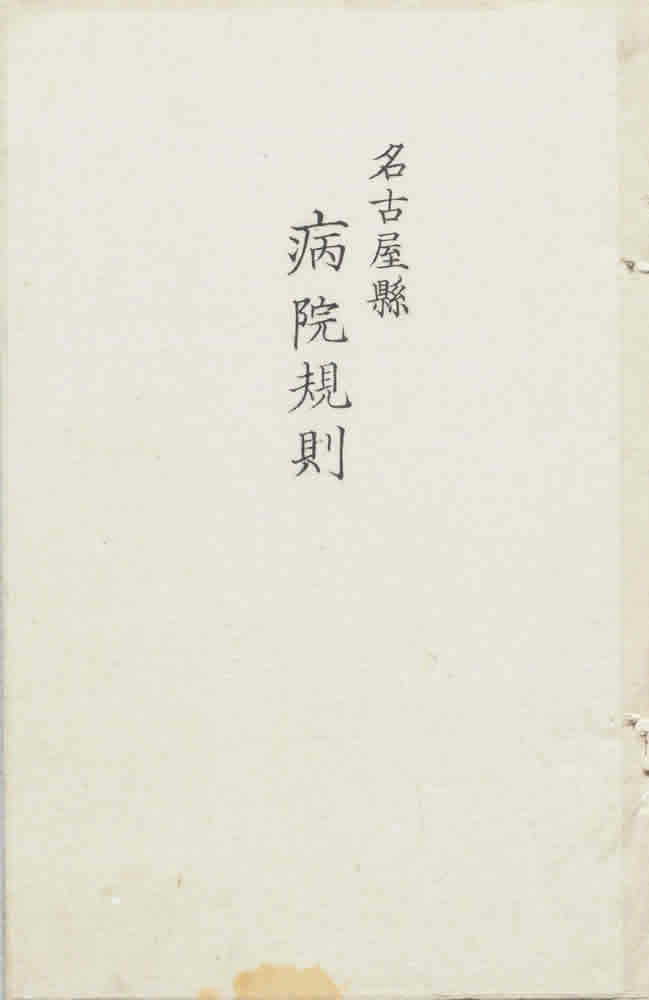 名古屋縣
病院規則